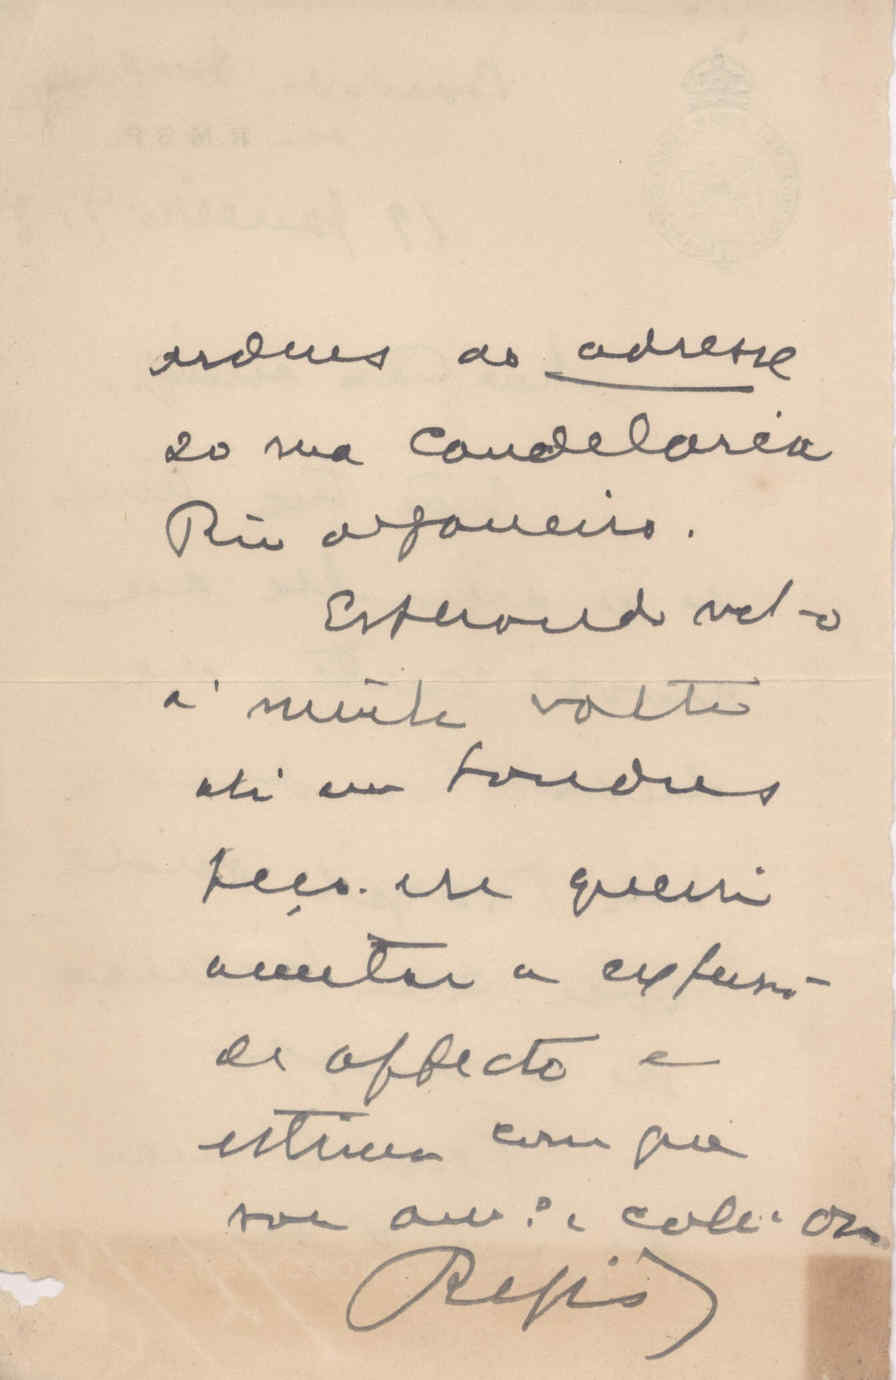 ordens ao adresse
20 rua Candelaria
Rio de Janeiro.
Esperando vel-o
á minha volta
ahi em Londres
peço-lhe queira
aceitar a expressão
de affecto e
estima com que
sou am.º e coll.
Regis